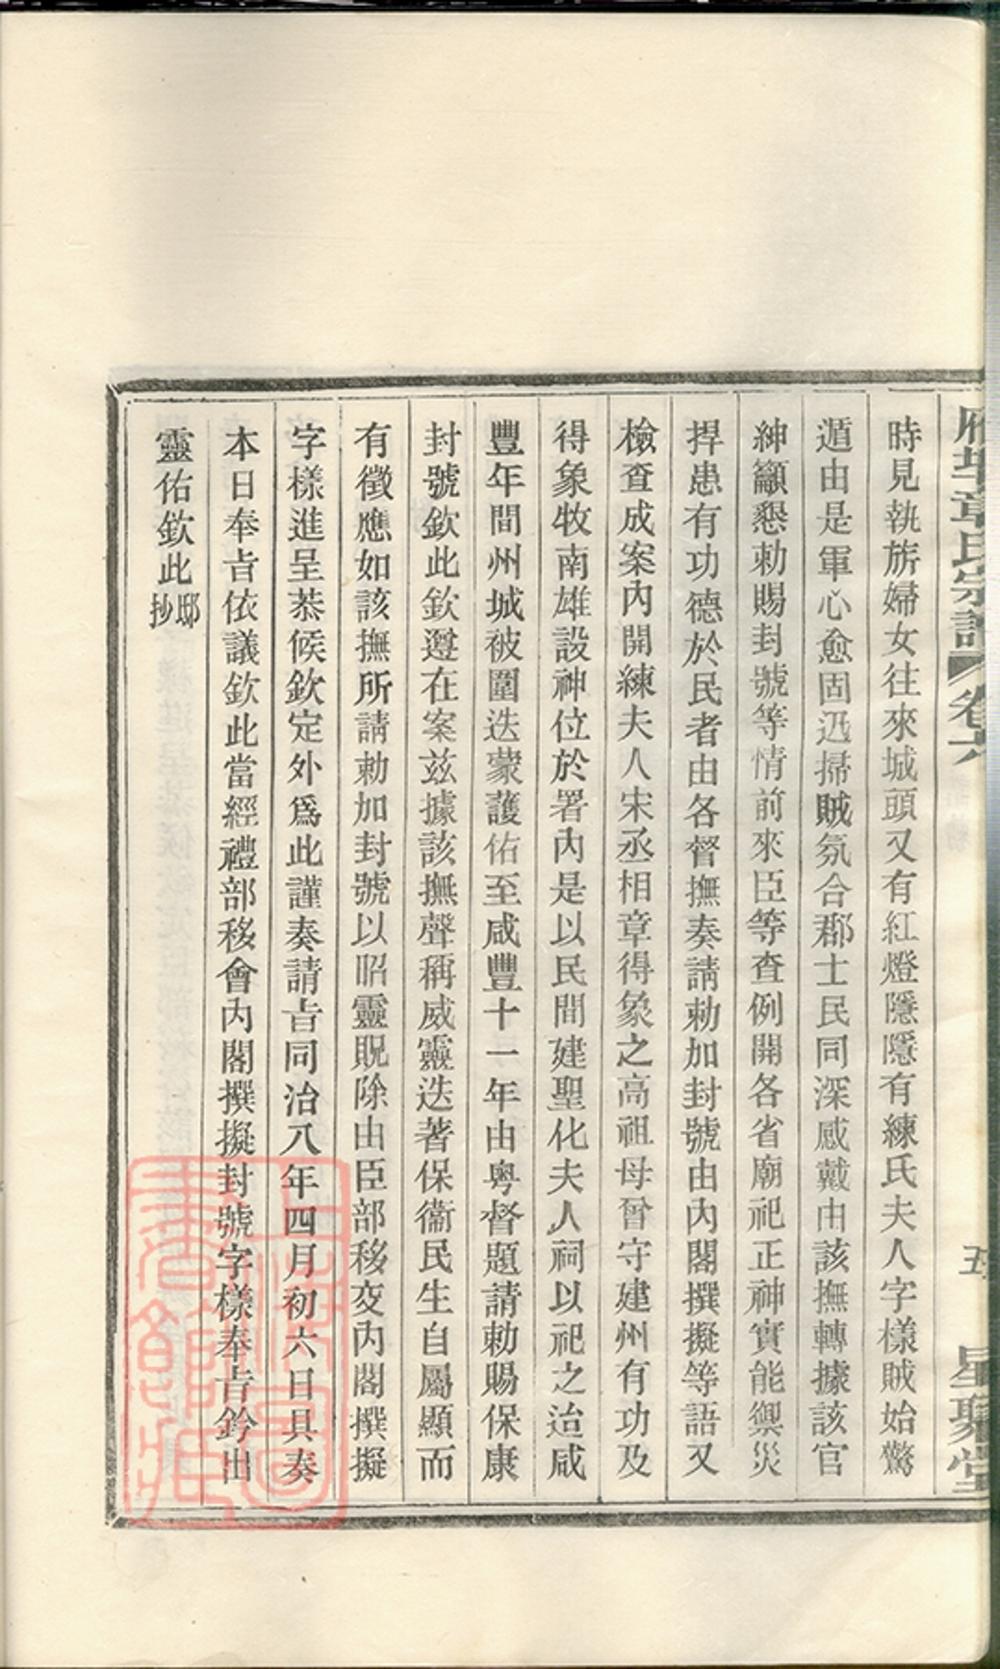 雁塔章氏宗譜 卷六 五 星聚堂
時見執旂婦女往來城頭又有紅燈隱隱有練氏夫人字樣賊始驚
遁由是軍心愈固迅掃賊氛合郡士民同深感戴由該撫轉據該官
紳籲懇勅賜封號等情前來臣等查例開各省廟祀正神實能禦災
捍患有功德於民者由各督撫奏請勅加封號由內閣撰擬等語又
檢查成案內開練夫人宋丞相章得象之高祖母曾守建州有功及
得象牧南雄設神位於署內是以民間建聖化夫人祠以祀之迨咸
豐年間州城被圍迭蒙護佑至咸豐十一年由粵督題請勅賜保康
封號欽此欽遵在案兹據該撫聲稱威靈迭著保衞民生自屬顯而
有徵應如該撫所請勅加封號以昭靈貺除由臣部移交內閣撰擬
字樣進呈恭候欽定外爲此謹奏請旨同治八年四月初六日具奏
本日奉旨依議欽此當經禮部移會內閣撰擬封號字樣奉旨鈐出
靈佑欽此邸抄